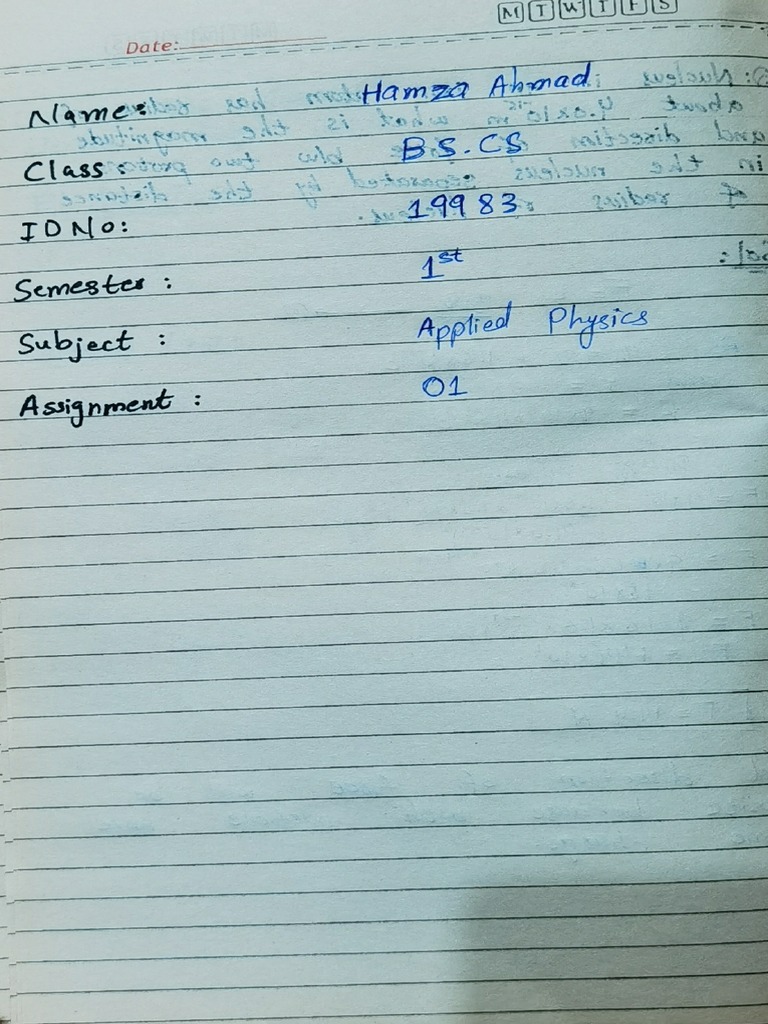 M T W T F S
Date:
Name: Hamza Ahmad
Class: BS.CS
ID No: 19983
Semester: 1st
Subject: Applied Physics
Assignment: 01